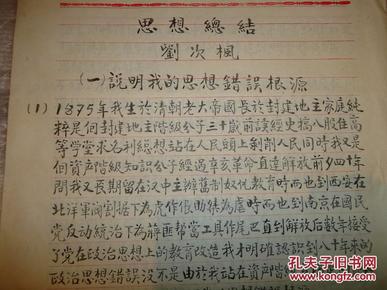 思想總結
劉次楓
(一)説明我的思想錯誤根源
(1) 1875年我生於清朝老大帝國長於封建地主家庭純
粹是個封建地主階級分子三十歲前讀經史搞八股住高
等學堂求名利總想站在人民頭上剝削人民同時我又是
個資産階級知識分子經過辛亥革命直達解放前夕四十年
間我又長期留在汉中主辦舊制奴化教育時而也到西安在
北洋軍閥割据下為虎作倀助桀為虐時而也到南京在國民
党反动統治下為蔣匪幫當工具作尾巴直到解放后数年接受
了党在政治思想上的教育改造我才明確認識到八十年來的
政治思想錯誤没不是由於我站在資产階
孔夫子旧书网